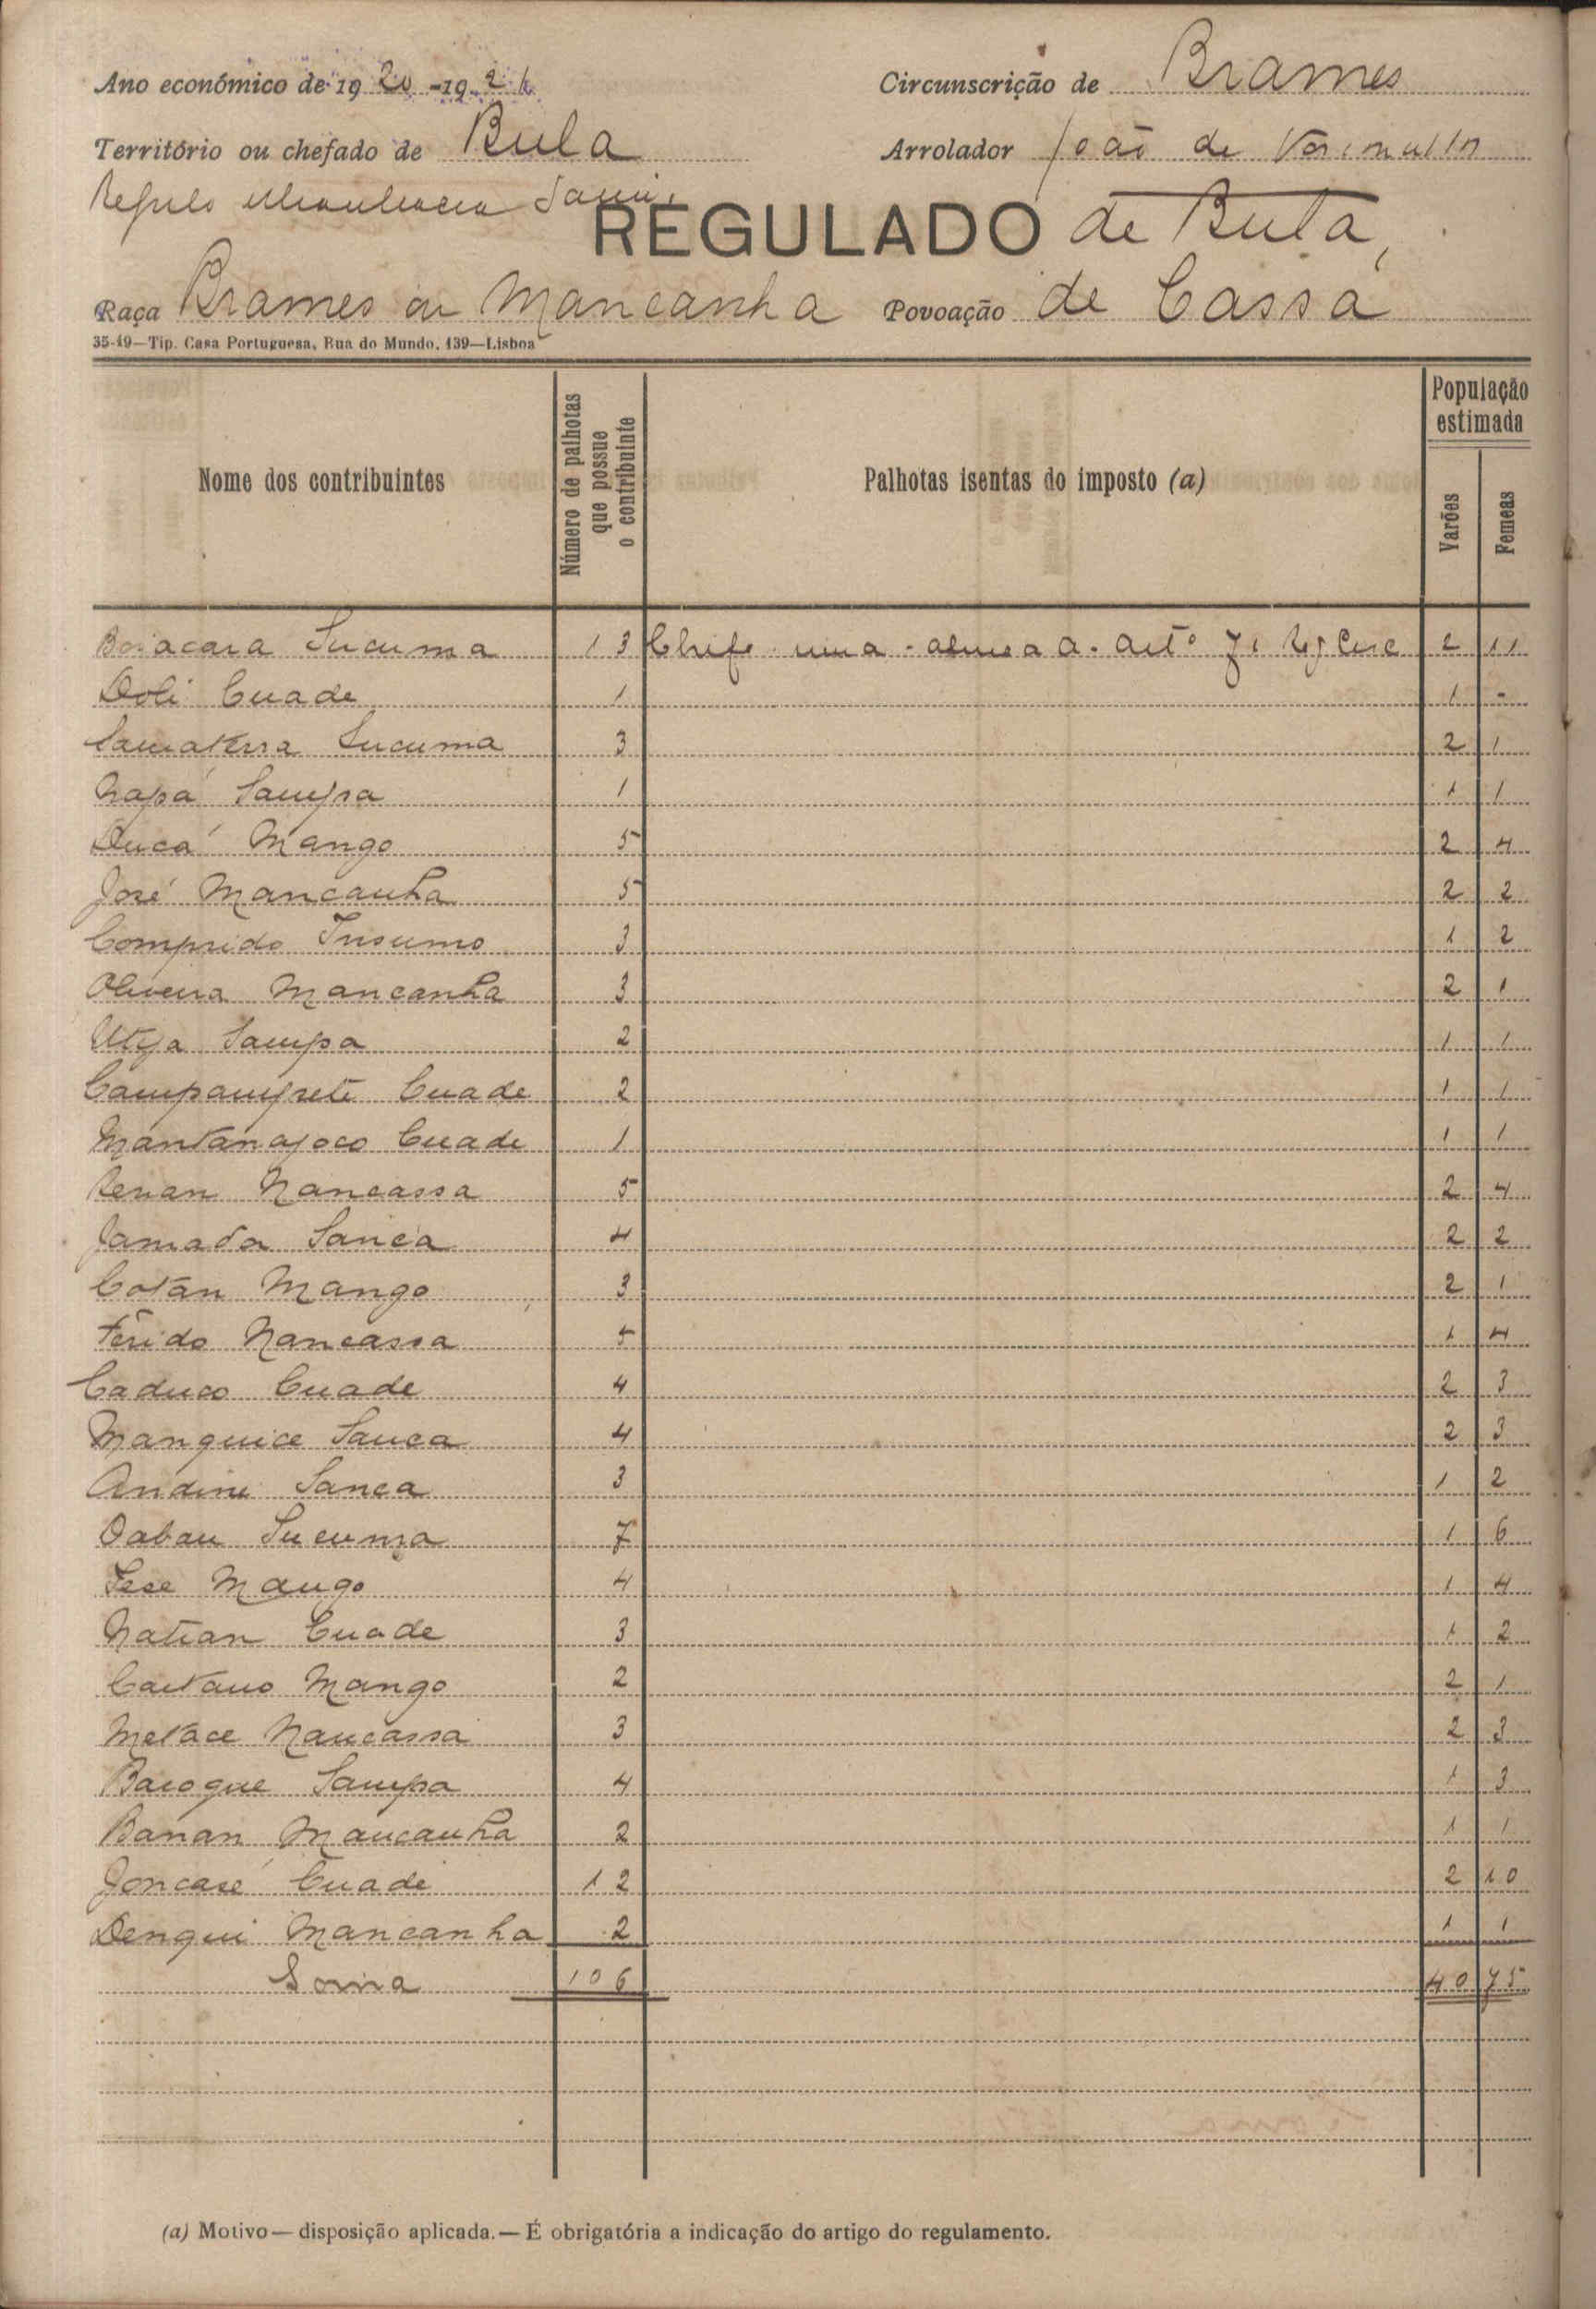 Ano económico de 1920-192
Circunscrição de Brames
Território ou chefado de Bula
Arrolador João de
Regulo
REGULADO de Bula,
Raça Brames ou Mancanha Povoação de Cassá
35-19—Tip. Casa Portuguesa, Rua do Mundo, 139—Lisboa
Nome dos contribuintes
Número de palhotas que possue o contribuinte
Palhotas isentas do imposto (a)
População estimada
Varões
Femeas
Sucuma 13 Chefe uma artº 7º 2 11
Doli Cuade 1 1 -
Sucuma 3 2 1
Napá Sampa 1 1 1
Ducá Mango 5 2 4
José Mancanha 5 2 2
Comprido Insumo 3 1 2
Oliveira Mancanha 3 2 1
Sampa 2 1 1
Cuade 2 1 1
Cuade 1 1 1
Nancassa 5 2 4
Jamada Sanca 4 2 2
Cotán Mango 3 2 1
Férido Nancassa 5 1 4
Caduco Cuade 4 2 3
Manquice Sanca 4 2 3
Andine Sanca 3 1 2
Oabau Sucuma 7 1 6
Mango 4 1 4
Natian Cuade 3 1 2
Caetano Mango 2 2 1
Metace Nancassa 3 2 3
Sampa 4 1 3
Banan Mancanha 2 1 1
Joncasé Cuade 12 2 10
Dengui Mancanha 2 1 1
Soma 106 40 75
(a) Motivo—disposição aplicada.—É obrigatória a indicação do artigo do regulamento.